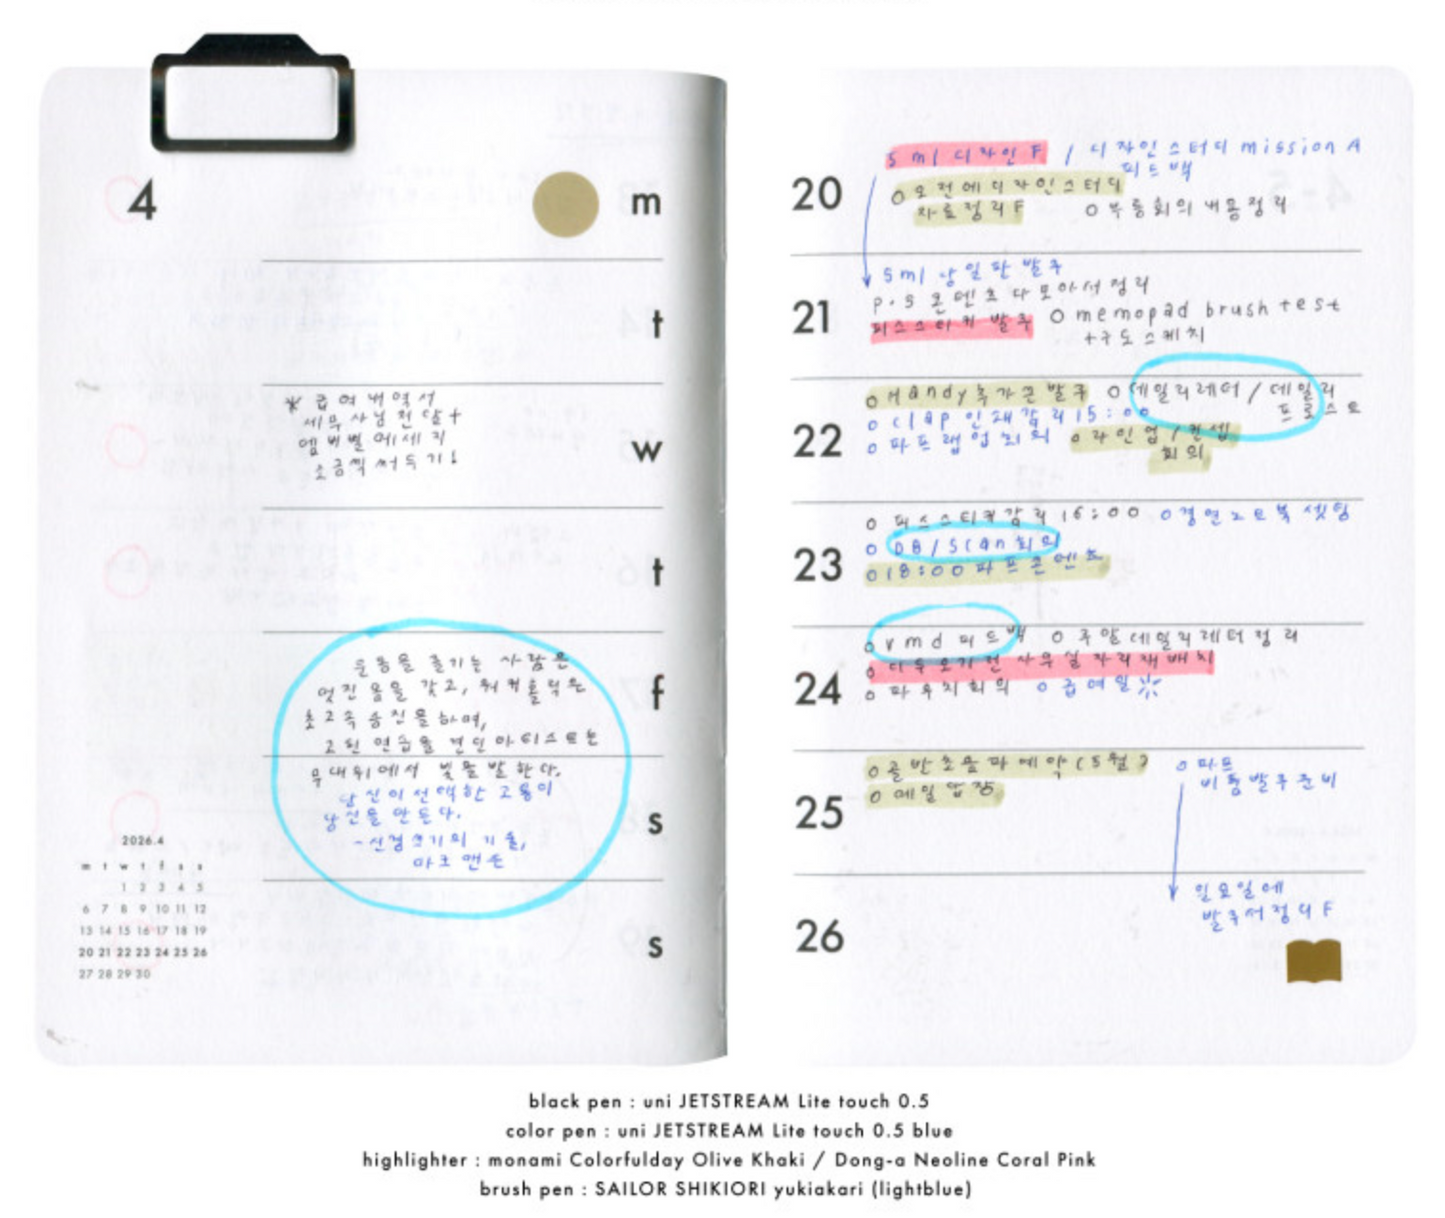 4
m
t
w
t
f
s
s
※ 급여내역서
세무사님 전달 +
엠버밸 에세지
조금씩 써두기!
운동을 즐기는 사람은
멋진 몸을 갖고, 워커홀릭은
초고속 승진을 하며,
고된 연습을 견딘 아티스트는
무대위에서 빛을 발한다.
당신이 선택한 고통이
당신을 만든다.
-신경끄기의 기술,
마크 맨슨
2026.4
m t w t f s s
1 2 3 4 5
6 7 8 9 10 11 12
13 14 15 16 17 18 19
20 21 22 23 24 25 26
27 28 29 30
20
5ml 디자인 F / 디자인스터디 mission A
피드백
o 오전에 디자인스터디
자료정리 F o 부릉회의 내용정리
21
5ml 낱일판 발주
P.S 콘텐츠 다 모아서 정리
피스스티커 발주 o memopad brush test
+구도스케치
22
o Handy 추가분 발주 o 데일리레터 / 데일리
프로스트
o clap 인쇄감리 15:00
o 파프랩업회의 o 라인업 / 컨셉
회의
23
o 피스스티커감리 16:00 o 경연노트북 셋팅
o DB / Scan 회의
o 18:00 파프콘텐츠
24
o vmd 피드백 o 주말데일리레터정리
o 더욱오기전 사무실 자리재배치
o 파우치회의 o 급여일
25
o 골반초음파예약 (5월)
o 메일답장
o 파프
비품발주준비
26
일요일에
발주서정리 F
black pen : uni JETSTREAM Lite touch 0.5
color pen : uni JETSTREAM Lite touch 0.5 blue
highlighter : monami Colorfulday Olive Khaki / Dong-a Neoline Coral Pink
brush pen : SAILOR SHIKIORI yukiakari (lightblue)